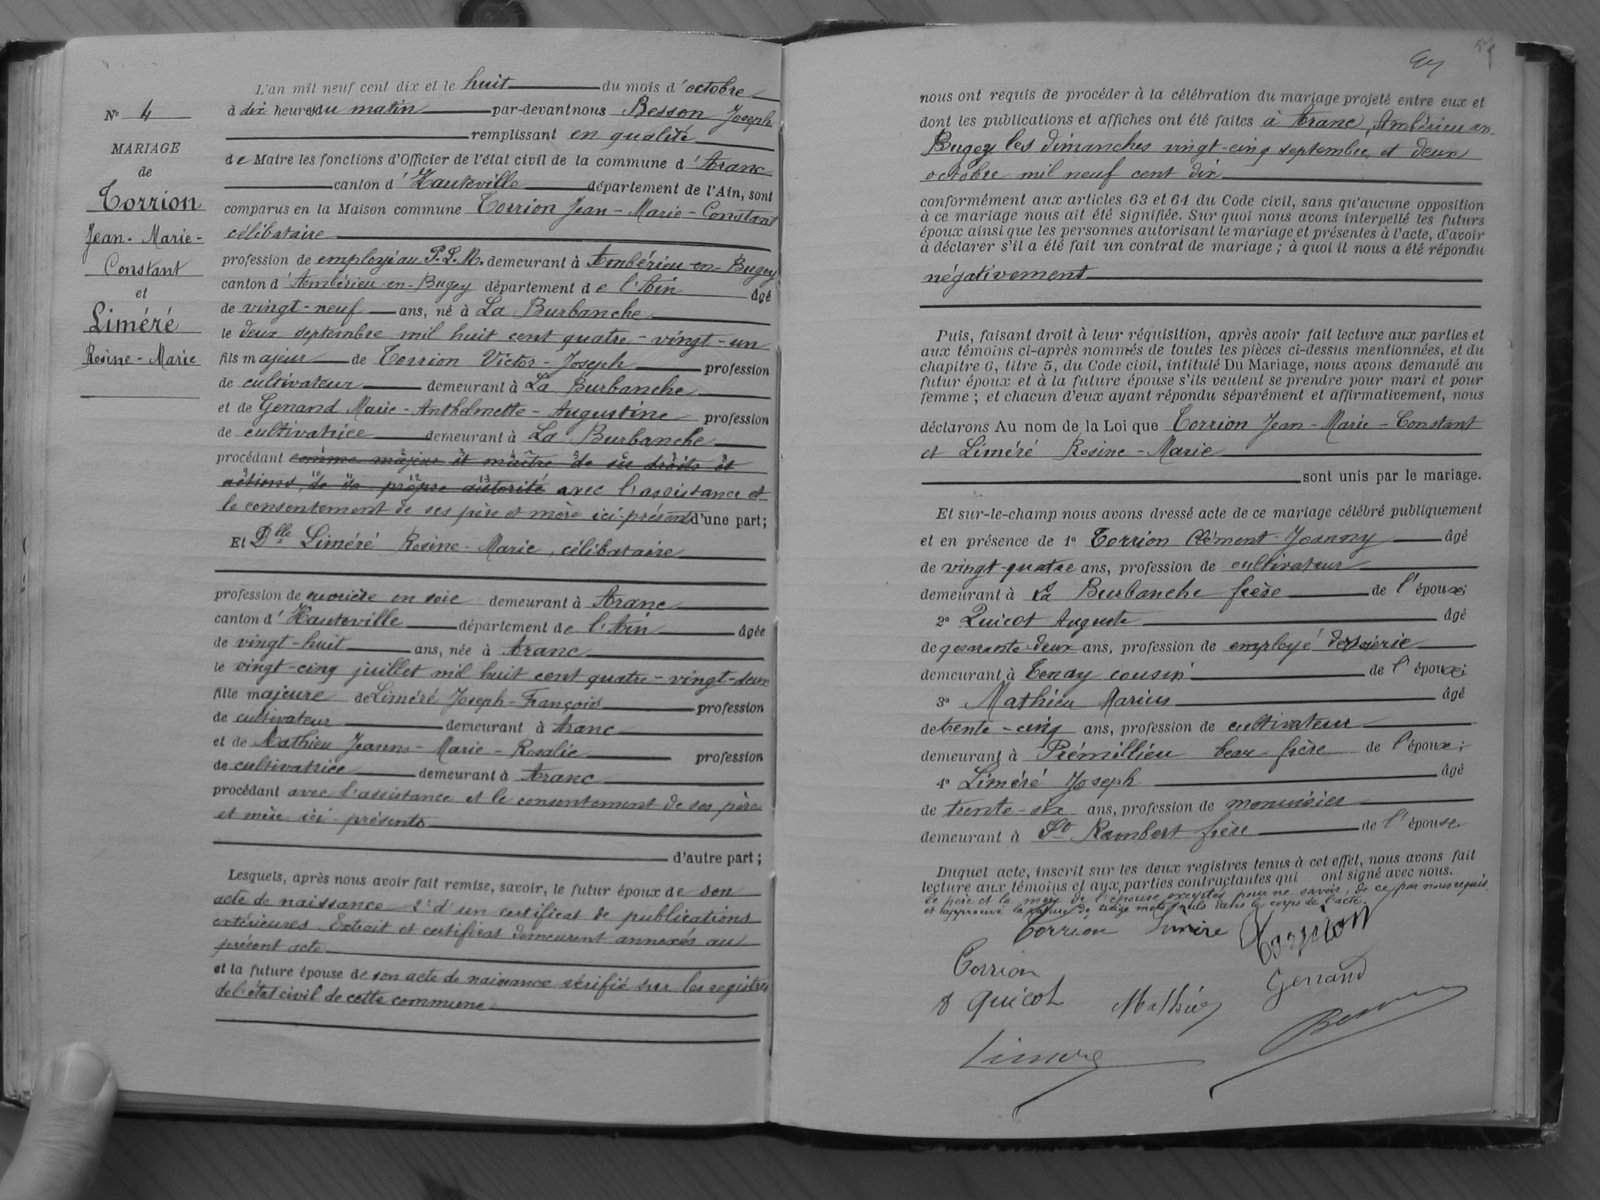 L'an mil neuf cent dix et le huit du mois d'octobre
à dix heures du matin par-devant nous Besson Joseph
remplissant en qualité
de Maire les fonctions d'Officier de l'état civil de la commune d'Aranc
canton d'Hauteville département de l'Ain, sont
comparus en la Maison commune Torrion Jean-Marie-Constant
célibataire
profession de employé au P.L.M. demeurant à Ambérieu-en-Bugey
canton d'Ambérieu-en-Bugey département de l'Ain âgé
de vingt-neuf ans, né à La Burbanche
le deux septembre mil huit cent quatre-vingt-un
fils majeur de Torrion Victor-Joseph profession
de cultivateur demeurant à La Burbanche
et de Genand Marie-Anthelmette-Augustine profession
de cultivatrice demeurant à La Burbanche
procédant comme majeur et maître de ses droits et
actions, de sa propre autorité avec l'assistance et
le consentement de ses père et mère ici présents d'une part;
Et Dlle Liméré Rosine-Marie, célibataire
profession de ouvrière en soie demeurant à Aranc
canton d'Hauteville département de l'Ain âgée
de vingt-huit ans, née à Aranc
le vingt-cinq juillet mil huit cent quatre-vingt-deux
fille majeure de Liméré Joseph-François profession
de cultivateur demeurant à Aranc
et de Mathieu Jeanne-Marie-Rosalie profession
de cultivatrice demeurant à Aranc
procédant avec l'assistance et le consentement de ses père
et mère ici présents
d'autre part;
Lesquels, après nous avoir fait remise, savoir, le futur époux de son
acte de naissance 2° d'un certificat de publications
extérieures. Extrait et certificat demeurent annexés au
présent acte
et la future épouse de son acte de naissance vérifié sur les registres
de l'état civil de cette commune
N° 4
MARIAGE
de
Torrion
Jean-Marie-
Constant
et
Liméré
Rosine-Marie
nous ont requis de procéder à la célébration du mariage projeté entre eux et
dont les publications et affiches ont été faites à Aranc, Ambérieu-en-
Bugey les dimanches vingt-cinq septembre et deux
octobre mil neuf cent dix
conformément aux articles 63 et 64 du Code civil, sans qu'aucune opposition
à ce mariage nous ait été signifiée. Sur quoi nous avons interpellé les futurs
époux ainsi que les personnes autorisant le mariage et présentes à l'acte, d'avoir
à déclarer s'il a été fait un contrat de mariage; à quoi il nous a été répondu
négativement
Puis, faisant droit à leur réquisition, après avoir fait lecture aux parties et
aux témoins ci-après nommés de toutes les pièces ci-dessus mentionnées, et du
chapitre 6, titre 5, du Code civil, intitulé Du Mariage, nous avons demandé au
futur époux et à la future épouse s'ils veulent se prendre pour mari et pour
femme; et chacun d'eux ayant répondu séparément et affirmativement, nous
déclarons Au nom de la Loi que Torrion Jean-Marie-Constant
et Liméré Rosine-Marie
sont unis par le mariage.
Et sur-le-champ nous avons dressé acte de ce mariage célébré publiquement
et en présence de 1° Torrion Clément-Joanny âgé
de vingt-quatre ans, profession de cultivateur
demeurant à La Burbanche frère de l'époux;
2° Quicot Auguste âgé
de quarante-deux ans, profession de employé de soierie
demeurant à Tenay cousin de l'époux;
3° Mathieu Marius âgé
de trente-cinq ans, profession de cultivateur
demeurant à Prémillieu beau-frère de l'époux;
4° Liméré Joseph âgé
de trente-six ans, profession de menuisier
demeurant à St Rambert frère de l'épouse
Duquel acte, inscrit sur les deux registres tenus à cet effet, nous avons fait
lecture aux témoins et aux parties contractantes qui ont signé avec nous.
le père et la mère de l'épouse exceptés pour ne savoir, de ce par nous requis
et approuvé la rature de treize mots nuls dans le corps de l'acte.
Torrion Limére Torrion
Torrion Genand
A Quicot Mathieu
Besson
Limere